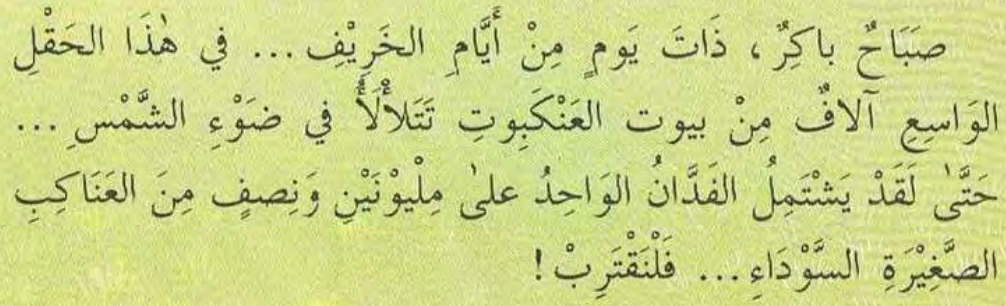 صَبَاحٌ باكِرٌ ، ذَاتَ يَومٍ مِنْ أَيَّامِ الخَرِيْفِ ... في هٰذَا الحَقْلِ
الوَاسِعِ آلافٌ مِنْ بيوت العَنْكَبِوتِ تَتَلأْلَأُ في ضَوْءِ الشَّمْسِ ...
حَتَّىٰ لَقَدْ يَشْتَمِلُ الفَدَّانُ الوَاحِدُ علىٰ مِلْيوْنَيْنِ وَنِصفٍ مِنَ العَنَاكِبِ
الصَّغِيْرَةِ السَّوْدَاءِ ... فَلْنَقْتَرِبْ !